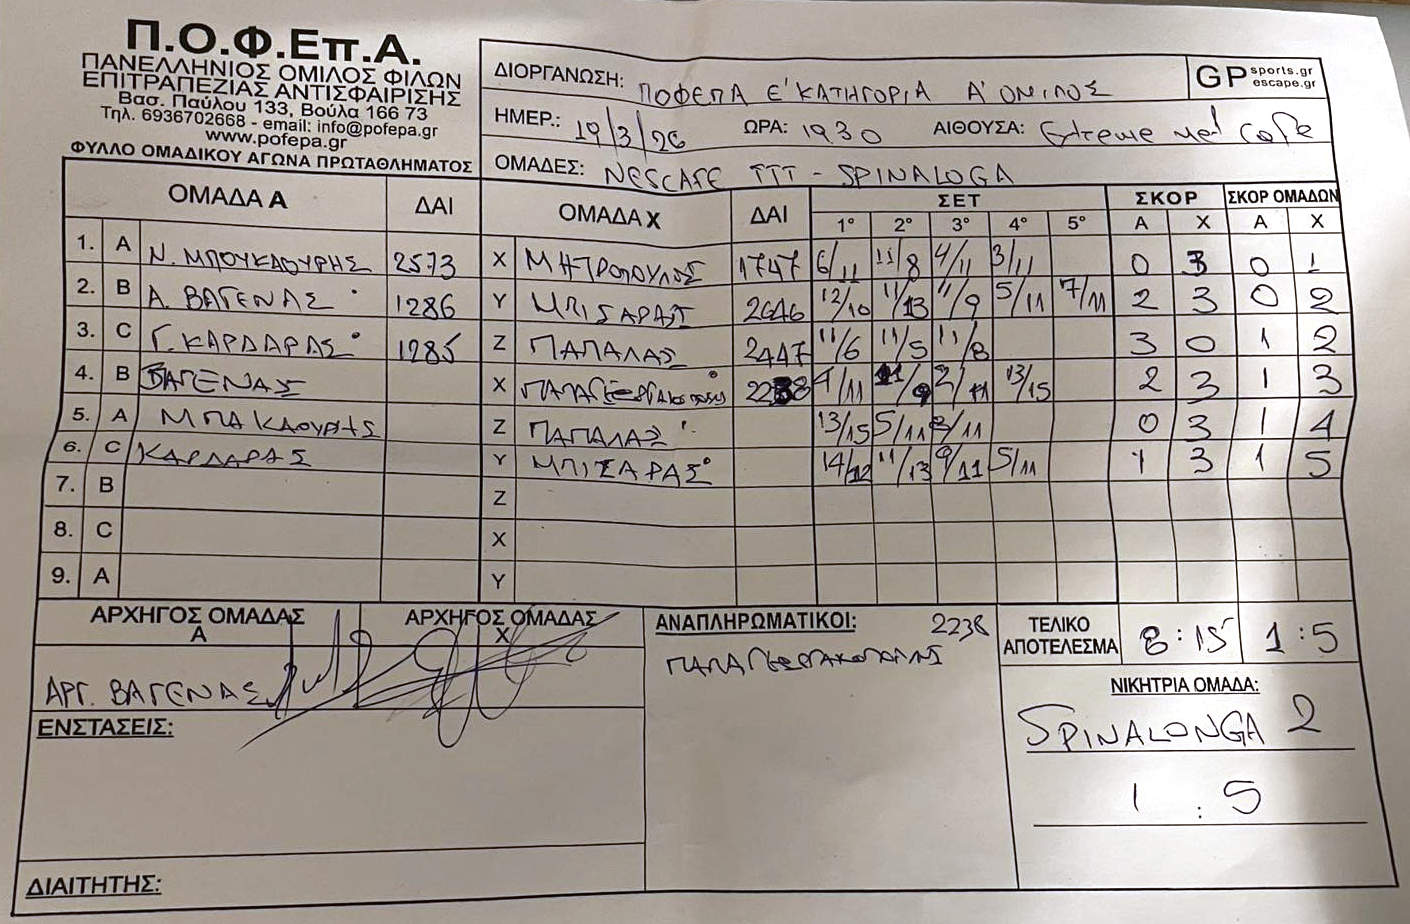 Π.Ο.Φ.Επ.Α.
ΠΑΝΕΛΛΗΝΙΟΣ ΟΜΙΛΟΣ ΦΙΛΩΝ
ΕΠΙΤΡΑΠΕΖΙΑΣ ΑΝΤΙΣΦΑΙΡΙΣΗΣ
Βασ. Παύλου 133, Βούλα 166 73
Τηλ. 6936702668 - email: info@pofepa.gr
www.pofepa.gr
ΦΥΛΛΟ ΟΜΑΔΙΚΟΥ ΑΓΩΝΑ ΠΡΩΤΑΘΛΗΜΑΤΟΣ
ΔΙΟΡΓΑΝΩΣΗ: ΠΟΦΕΠΑ Ε' ΚΑΤΗΓΟΡΙΑ Α' ΟΜΙΛΟΣ
GP sports.gr escape.gr
ΗΜΕΡ.: 19/3/26 ΩΡΑ: 1930 ΑΙΘΟΥΣΑ: Extreme Net Cafe
ΟΜΑΔΕΣ: NESCAFE TTT - SPINALOGA
ΟΜΑΔΑ Α ΔΑΙ ΟΜΑΔΑ Χ ΔΑΙ ΣΕΤ ΣΚΟΡ ΣΚΟΡ ΟΜΑΔΩΝ
1° 2° 3° 4° 5° Α Χ Α Χ
1. A Ν. ΜΠΟΥΚΑΟΥΡΗΣ 2573 X ΜΗΤΡΟΠΟΥΛΟΣ 1747 6/11 11/8 4/11 3/11 0 3 0 1
2. B Α. ΒΑΓΕΝΑΣ 1286 Y ΜΠΙΣΑΡΑΣ 2646 12/10 11/13 11/9 5/11 7/11 2 3 0 2
3. C Γ. ΚΑΡΔΑΡΑΣ 1285 Z ΠΑΠΑΛΑΣ 2447 11/6 11/5 11/8 3 0 1 2
4. B ΒΑΓΕΝΑΣ X 2238 4/11 11/9 2/11 13/15 2 3 1 3
5. A ΜΠΑΚΑΟΥΡΗΣ Z ΠΑΠΑΛΑΣ 13/15 5/11 8/11 0 3 1 4
6. C ΚΑΡΔΑΡΑΣ Y ΜΠΙΣΑΡΑΣ 14/12 11/13 9/11 5/11 1 3 1 5
7. B Z
8. C X
9. A Y
ΑΡΧΗΓΟΣ ΟΜΑΔΑΣ Α ΑΡΧΗΓΟΣ ΟΜΑΔΑΣ Χ
ΑΡΓ. ΒΑΓΕΝΑΣ
ΕΝΣΤΑΣΕΙΣ:
ΔΙΑΙΤΗΤΗΣ:
ΑΝΑΠΛΗΡΩΜΑΤΙΚΟΙ: 2238
ΤΕΛΙΚΟ ΑΠΟΤΕΛΕΣΜΑ 8:15 1:5
ΝΙΚΗΤΡΙΑ ΟΜΑΔΑ:
SPINALONGA 2
1 : 5